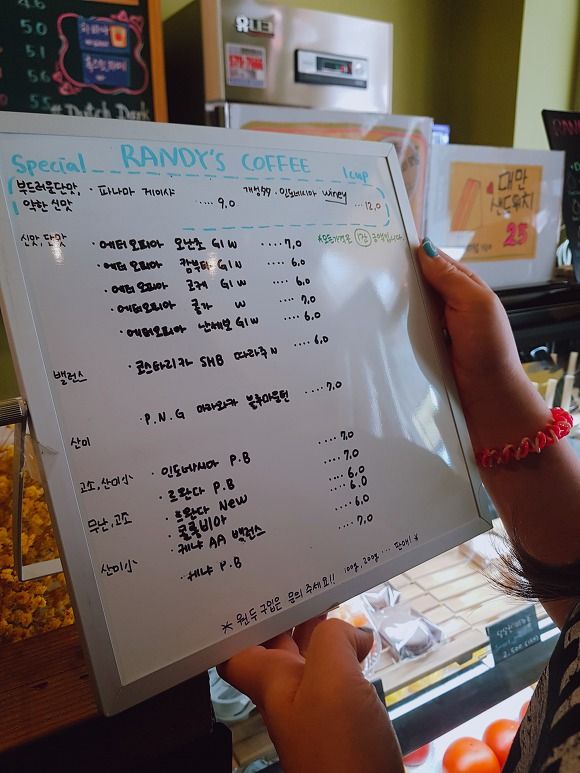 4.6
5.0
5.1
5.6
5.5
Dutch Dark
유니크
578-7666
Special RANDY's COFFEE 1cup
부드러운단맛, 약한신맛 · 파나마 게이샤 .... 9.0 개성99. 인도네시아 winey .... 12.0
신맛, 단맛 · 에티오피아 G1 W .... 7.0 1잔 금액입니다.
· 에티오피아 G1 N .... 6.0
· 에티오피아 코케 G1 N .... 6.0
· 에티오피아 W .... 7.0
· 에티오피아 난세보 G1 W .... 6.0
밸런스 · 코스타리카 SHB 따라주 N .... 6.0
· P.N.G 마라와카 블루마운틴 .... 7.0
산미
고소, 산미小 · 인도네시아 P.B .... 7.0
· 르완다 P.B .... 7.0
무난, 고소 · 르완다 New .... 6.0
· 콜롬비아 .... 6.0
· 케냐 AA 밸런스 .... 6.0
산미小 · 케냐 P.B .... 7.0
* 원두 구입은 문의 주세요!! 100g, 200g ... 판매! *
대만
샌드위치
25
2,500